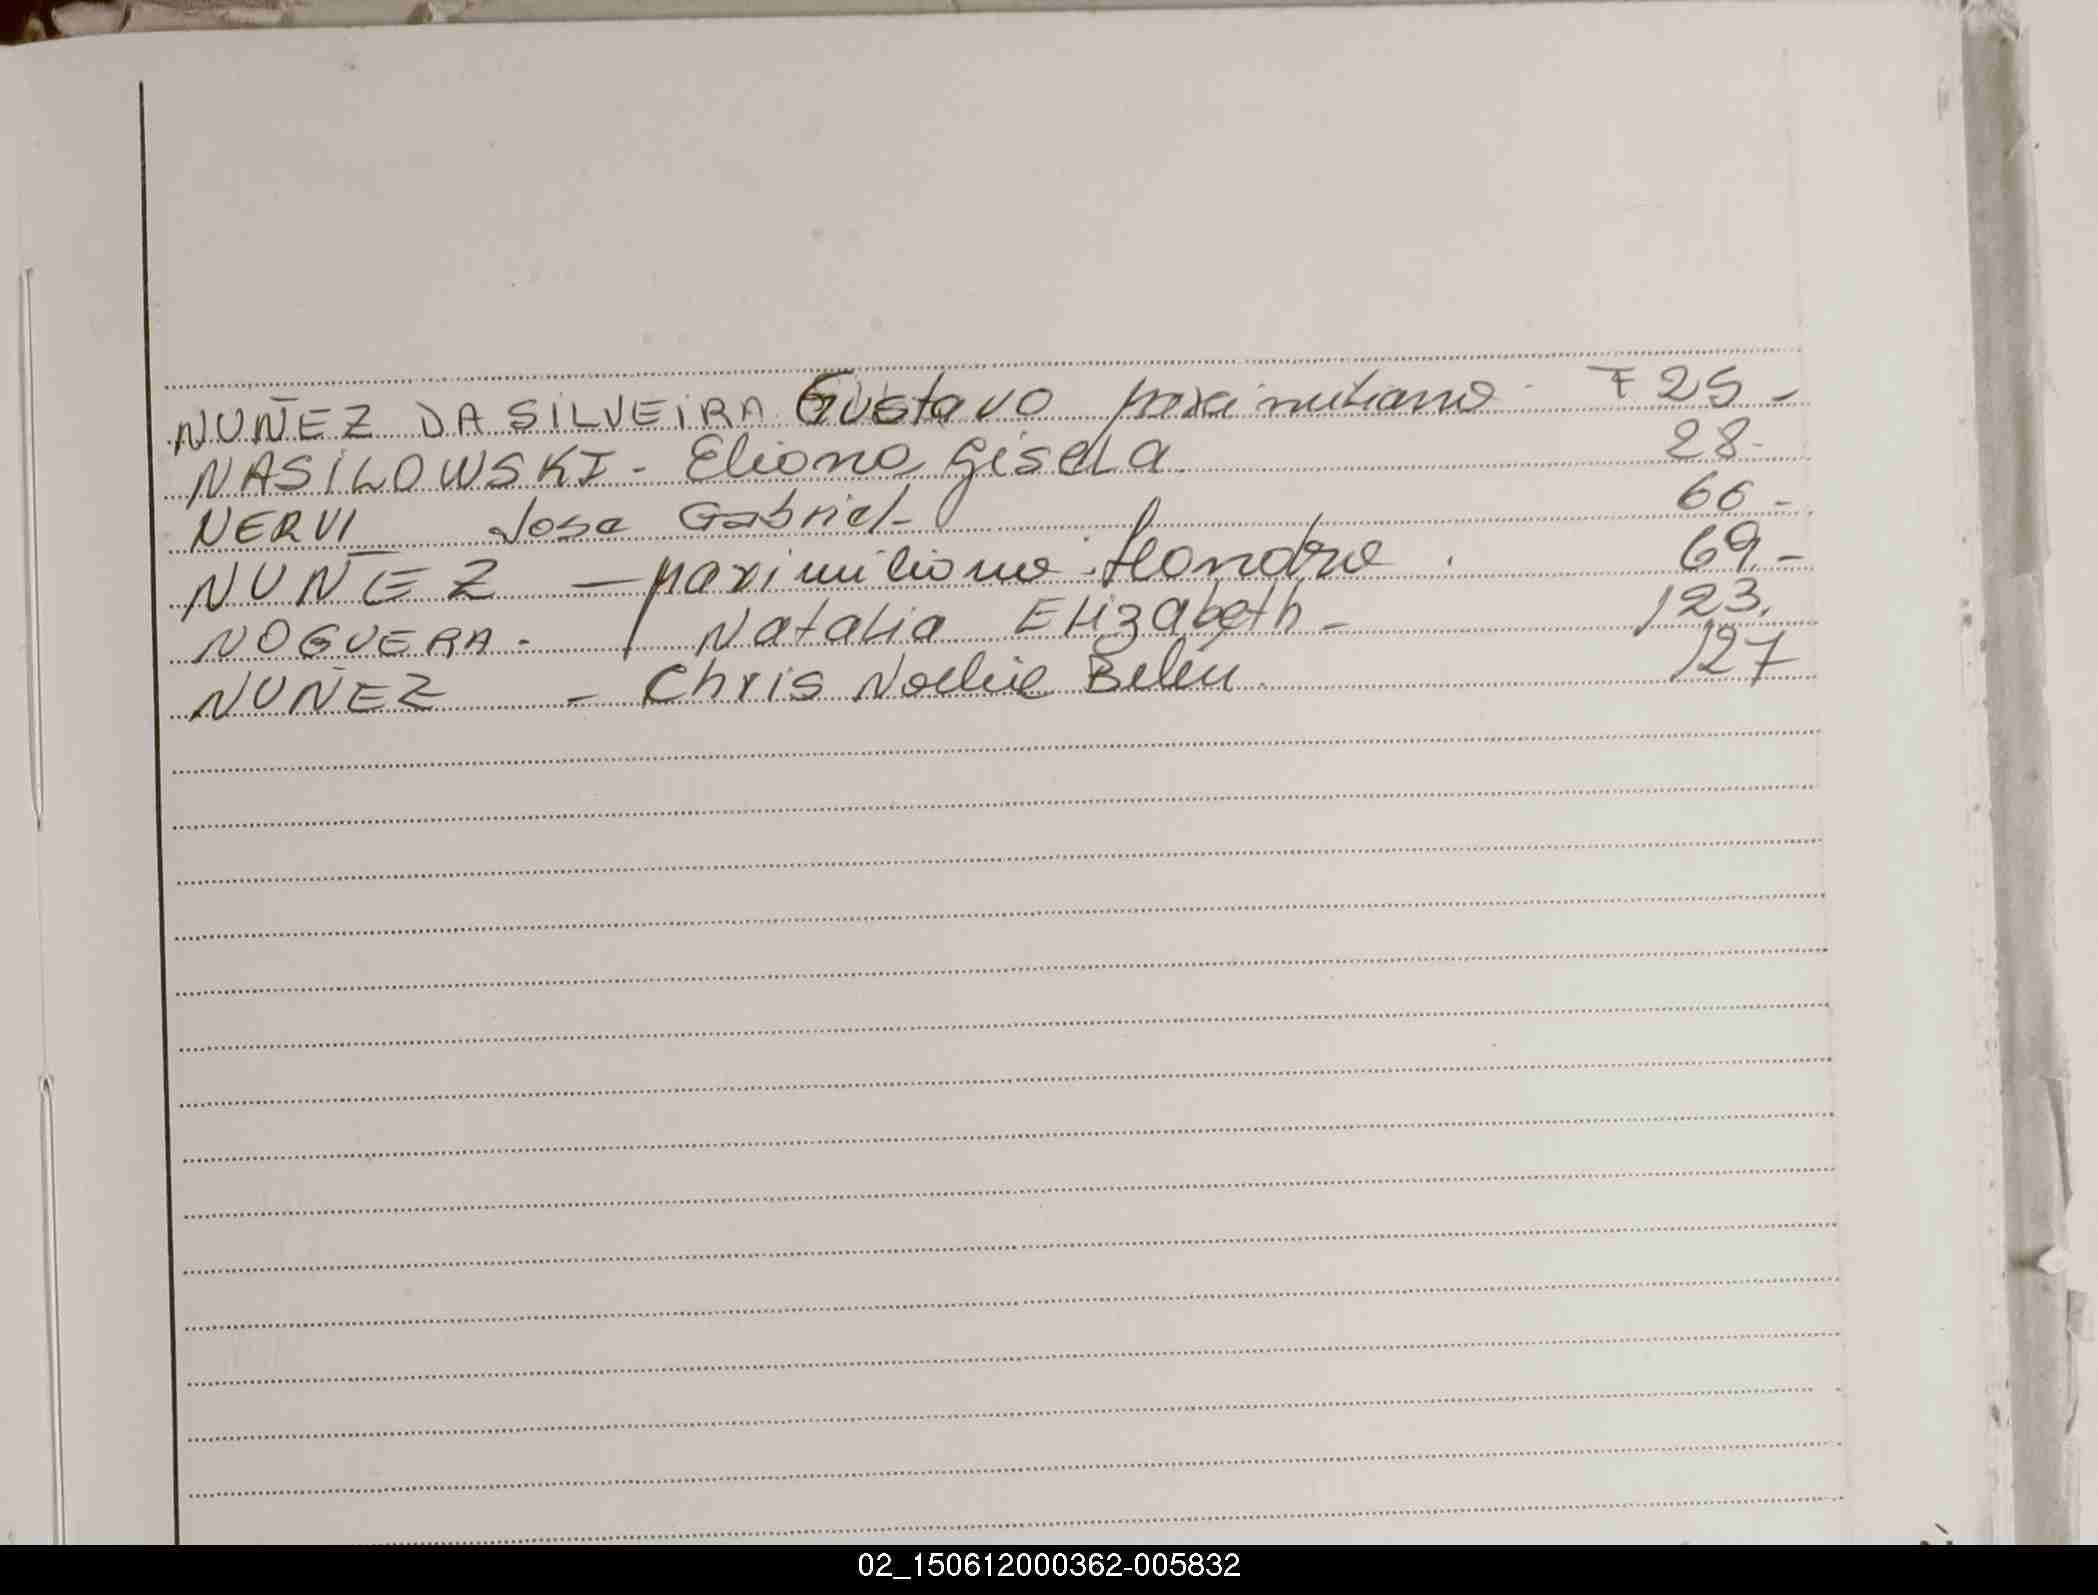 NUÑEZ DA SILVEIRA Gustavo maximiliano F 25 -
NASILOWSKI - Eliana Gisela 28 -
NERVI Jose Gabriel - 66 -
NUÑEZ - maximiliano 69 -
NOGUERA - Natalia Elizabeth - 123.
NUÑEZ - Chris Noelie Belen 127
02_150612000362-005832